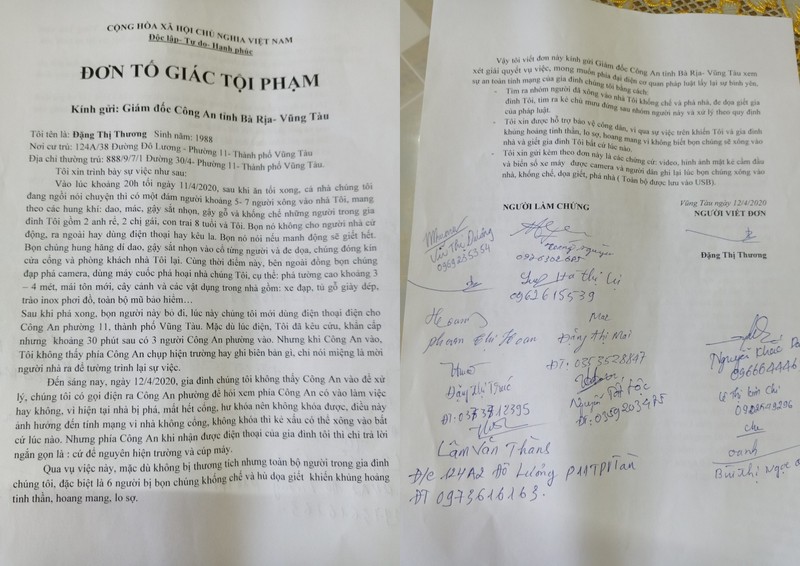 CỘNG HÒA XÃ HỘI CHỦ NGHĨA VIỆT NAM
Độc lập- Tự do- Hạnh phúc
ĐƠN TỐ GIÁC TỘI PHẠM
Kính gửi: Giám đốc Công An tỉnh Bà Rịa- Vũng Tàu
Tôi tên là: Đặng Thị Thương Sinh năm: 1988
Nơi cư trú: 124A/38 Đường Đô Lương - Phường 11- Thành phố Vũng Tàu
Địa chỉ thường trú: 888/9/7/1 Đường 30/4- Phường 11- Thành phố Vũng Tàu.
Tôi xin trình bày sự việc như sau:
Vào lúc khoảng 20h tối ngày 11/4/2020, sau khi ăn tối xong, cả nhà chúng tôi
đang ngồi nói chuyện thì có một đám người khoảng 5- 7 người xông vào nhà Tôi, mang
theo các hung khí: dao, mác, gậy sắt nhọn, gậy gỗ và khống chế những người trong gia
đình Tôi gồm 2 anh rể, 2 chị gái, con trai 8 tuổi và Tôi. Bọn nó không cho người nhà cử
động, ra ngoài hay dùng điện thoại hay kêu la. Bọn nó nói nếu manh động sẽ giết hết.
Bọn chúng hung hăng dí dao, gậy sắt nhọn vào cổ từng người và đe dọa, chúng đóng kín
cửa cổng và phòng khách nhà Tôi lại. Cùng thời điểm này, bên ngoài đồng bọn chúng
đạp phá camera, dùng máy cuốc phá hoại nhà chúng Tôi, cụ thể: phá tường cao khoảng 3
– 4 mét, mái tôn mới, cây cảnh và các vật dụng trong nhà gồm: xe đạp, tủ gỗ giày dép,
trào inox phơi đồ, toàn bộ mũ bảo hiểm…
Sau khi phá xong, bọn người này bỏ đi, lúc này chúng tôi mới dùng điện thoại điện cho
Công An phường 11, thành phố Vũng Tàu. Mặc dù lúc điện, Tôi đã kêu cứu, khẩn cấp
nhưng khoảng 30 phút sau có 3 người Công An phường vào. Nhưng khi Công An vào,
Tôi không thấy phía Công An chụp hiện trường hay ghi biên bản gì, chỉ nói miệng là mời
người nhà ra để tường trình lại sự việc.
Đến sáng nay, ngày 12/4/2020, gia đình chúng tôi không thấy Công An vào để xử
lý, chúng tôi có gọi điện ra Công An phường để hỏi xem phía Công An có vào làm việc
hay không, vì hiện tại nhà bị phá, mất hết cổng, hư khóa nên không khóa được, điều này
ảnh hưởng đến tính mạng vì nhà không cổng, không khóa thì kẻ xấu có thể xông vào bất
cứ lúc nào. Nhưng phía Công An khi nhận được điện thoại của gia đình tôi thì chỉ trả lời
ngắn gọn là : cứ để nguyên hiện trường và cúp máy.
Qua vụ việc này, mặc dù không bị thương tích nhưng toàn bộ người trong gia đình
chúng tôi, đặc biệt là 6 người bị bọn chúng khống chế và hù dọa giết khiến khủng hoảng
tinh thần, hoang mang, lo sợ.
Vậy tôi viết đơn này kính gửi Giám đốc Công An tỉnh Bà Rịa- Vũng Tàu xem
xét giải quyết vụ việc, mong muốn phía đại diện cơ quan pháp luật lấy lại sự bình yên,
sự an toàn tính mạng của gia đình chúng tôi bằng cách:
- Tìm ra nhóm người đã xông vào nhà Tôi khống chế và phá nhà, đe dọa giết gia
đình Tôi, tìm ra kẻ chủ mưu đứng sau nhóm người này và xử lý theo quy định
của pháp luật.
- Tôi xin được hỗ trợ bảo vệ công dân, vì qua sự việc trên khiến Tôi và gia đình
khủng hoảng tinh thần, lo sợ, hoang mang vì không biết bọn chúng sẽ xông vào
nhà và giết gia đình Tôi bất cứ lúc nào.
- Tôi xin gửi kèm theo đơn này là các chứng cứ: video, hình ảnh mặt kẻ cầm đầu
và biển số xe máy được camera và người dân ghi lại lúc bọn chúng xông vào
nhà, khống chế, dọa giết, phá nhà ( Toàn bộ được lưu vào USB).
Vũng Tàu, ngày 12/4/2020
NGƯỜI LÀM CHỨNG NGƯỜI VIẾT ĐƠN
Đặng Thị Thương
Văn Thị Dương
0969235354
0926302605
Hà thị Lự
0962615539
Hoan
phạm thị Hoan
Mai
Đặng Thị Mai
ĐT: 0353528847
Thuế
Đặng Thị Thuế
ĐT: 0373312395
Nguyễn Tất Lộc
ĐT: 0359203475
Nguyễn Khắc
096664446
Lê thị Kim Chi
chi
oanh
Bùi thị Ngọc
Lâm Văn Thành
Đ/c 124A2 Đô Lương P11 TPVTàu
ĐT 0973616163.